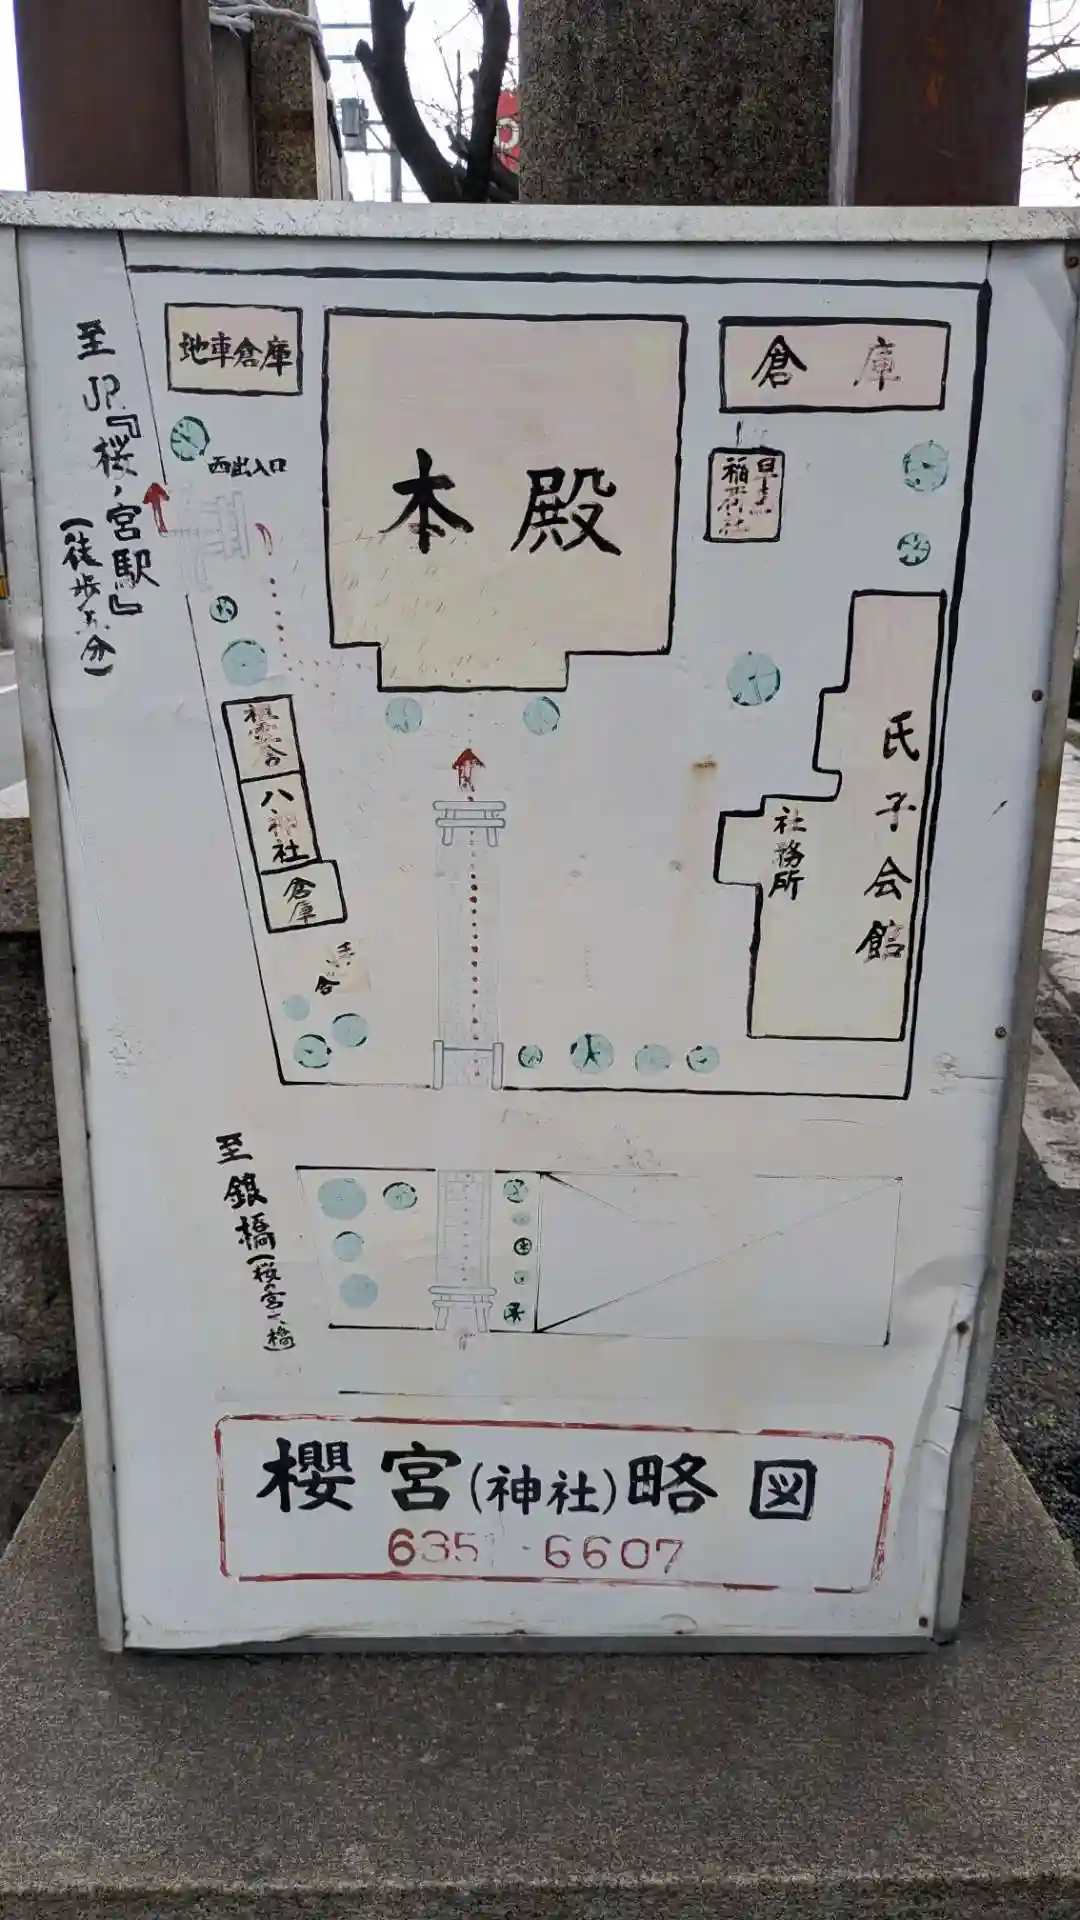 至JR『桜ノ宮駅』
(徒歩五分)
地車倉庫
西出入口
本殿
倉庫
稲荷社
祖霊舎
八神社
倉庫
氏子会館
社務所
至銀橋
(桜の宮大橋)
櫻宮(神社)略図
6351-6607